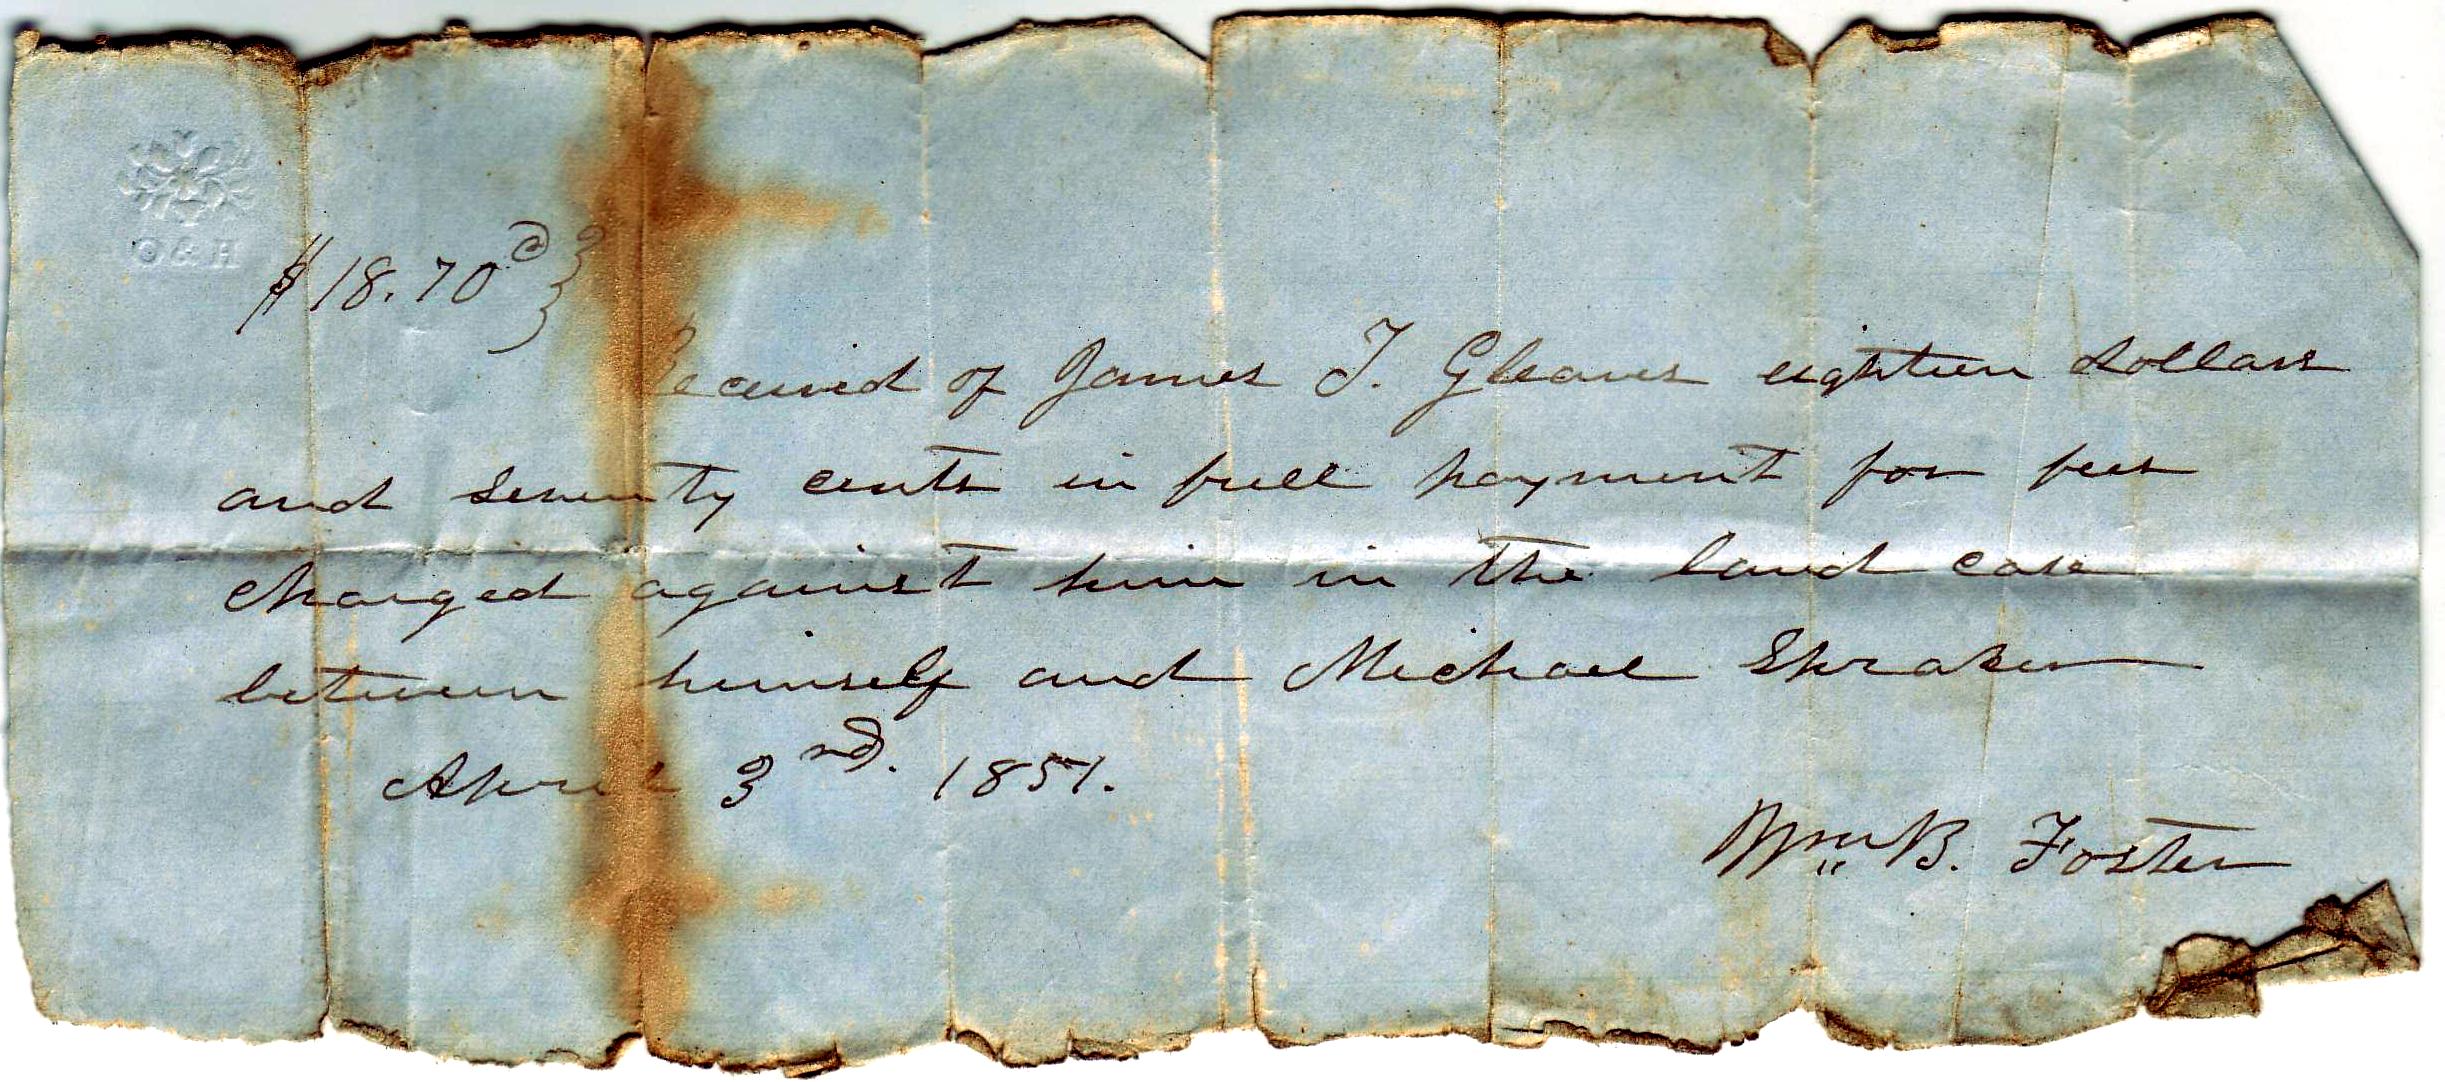 O & H
$18.70 c
Received of James T. Gleaves eighteen dollars
and seventy cents in full payment for fees
charged against him in the land case
between himself and Michael Spraker
April 3nd. 1851.
Wm B. Foster